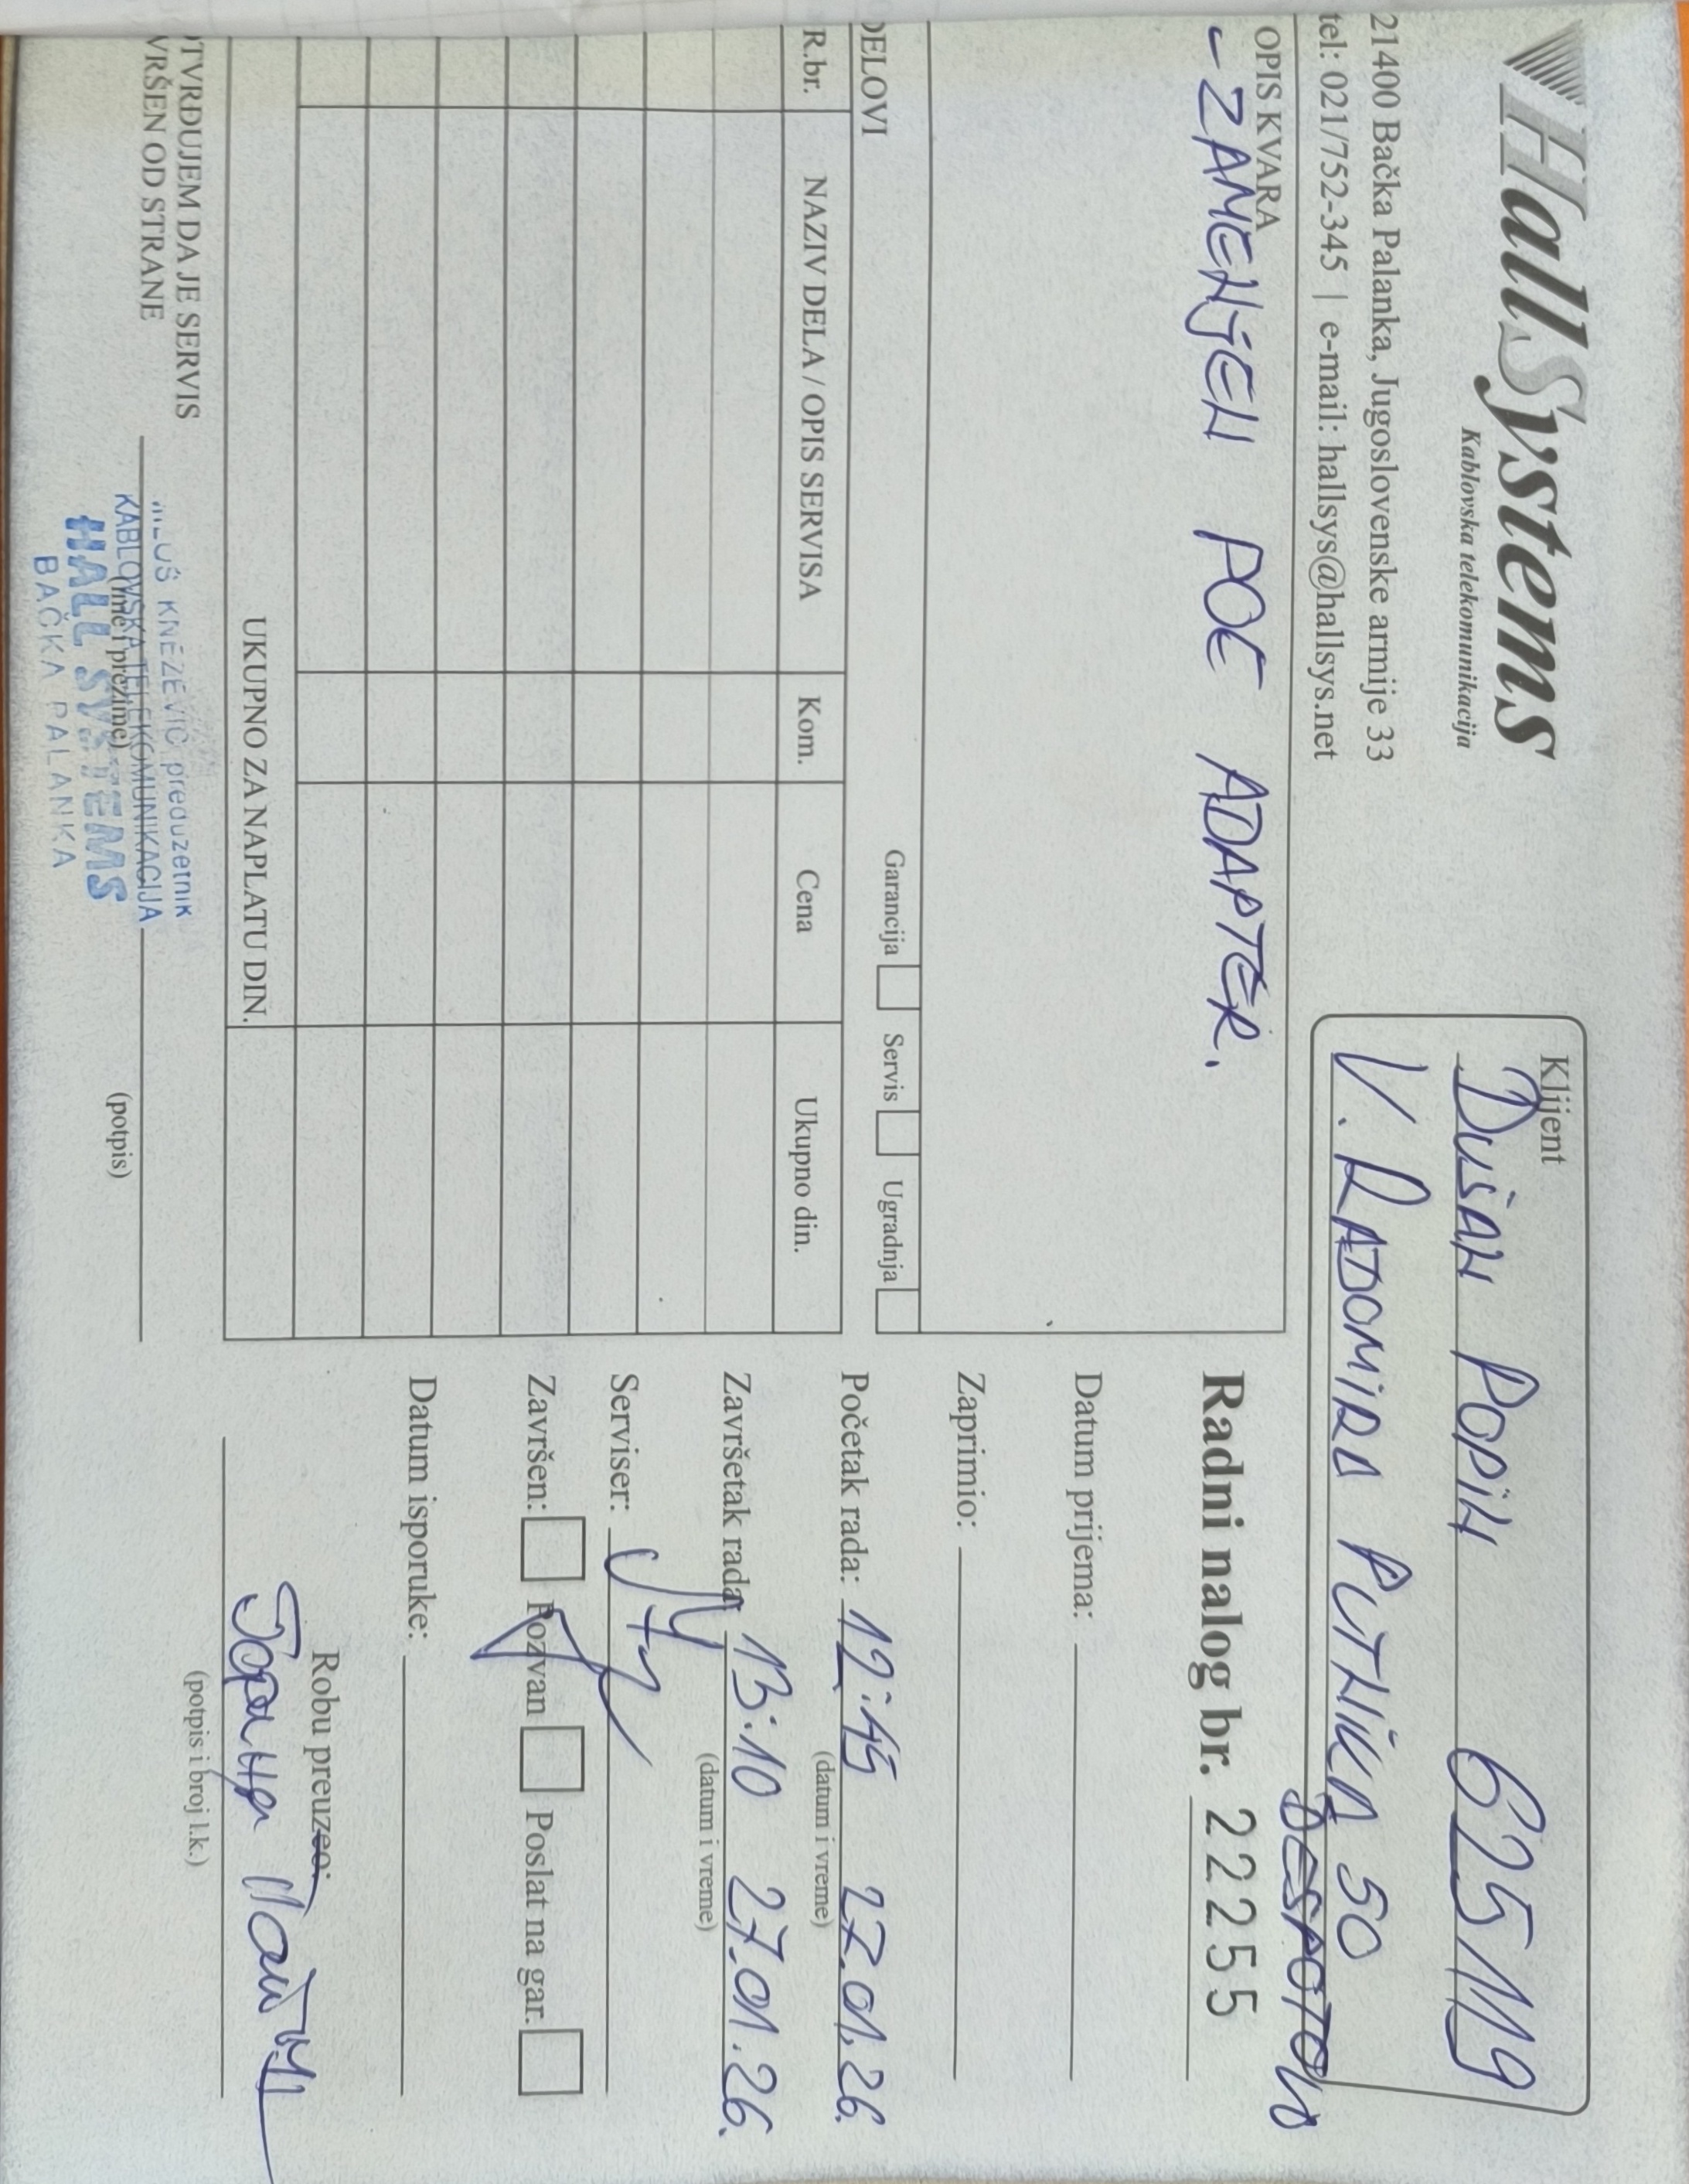 HallSystems
Kablovska telekomunikacija
21400 Bačka Palanka, Jugoslovenske armije 33
tel: 021/752-345 | e-mail: hallsys@hallsys.net
Klijent
DUŠAN POPIN 6251119
V. RADOMIRA PUTNIKA 50
DESPOTOVO
OPIS KVARA
- ZAMENJEN POE ADAPTER.
Radni nalog br. 22255
Datum prijema:
Zaprimio:
Početak rada: 12:45 27.01.26.
(datum i vreme)
Završetak rada: 13:10 27.01.26.
(datum i vreme)
Serviser:
Završen: Pozvan Poslat na gar.
Datum isporuke:
Robu preuzeo:
(potpis i broj l.k.)
Garancija Servis Ugradnja
DELOVI
R.br. NAZIV DELA / OPIS SERVISA Kom. Cena Ukupno din.
UKUPNO ZA NAPLATU DIN.
OTVRĐUJEM DA JE SERVIS
VRŠEN OD STRANE
(ime i prezime)
(potpis)
KNEŽEVIĆ preduzetnik
KABLOVSKA TELEKOMUNIKACIJA
HALL SYSTEMS
BAČKA PALANKA